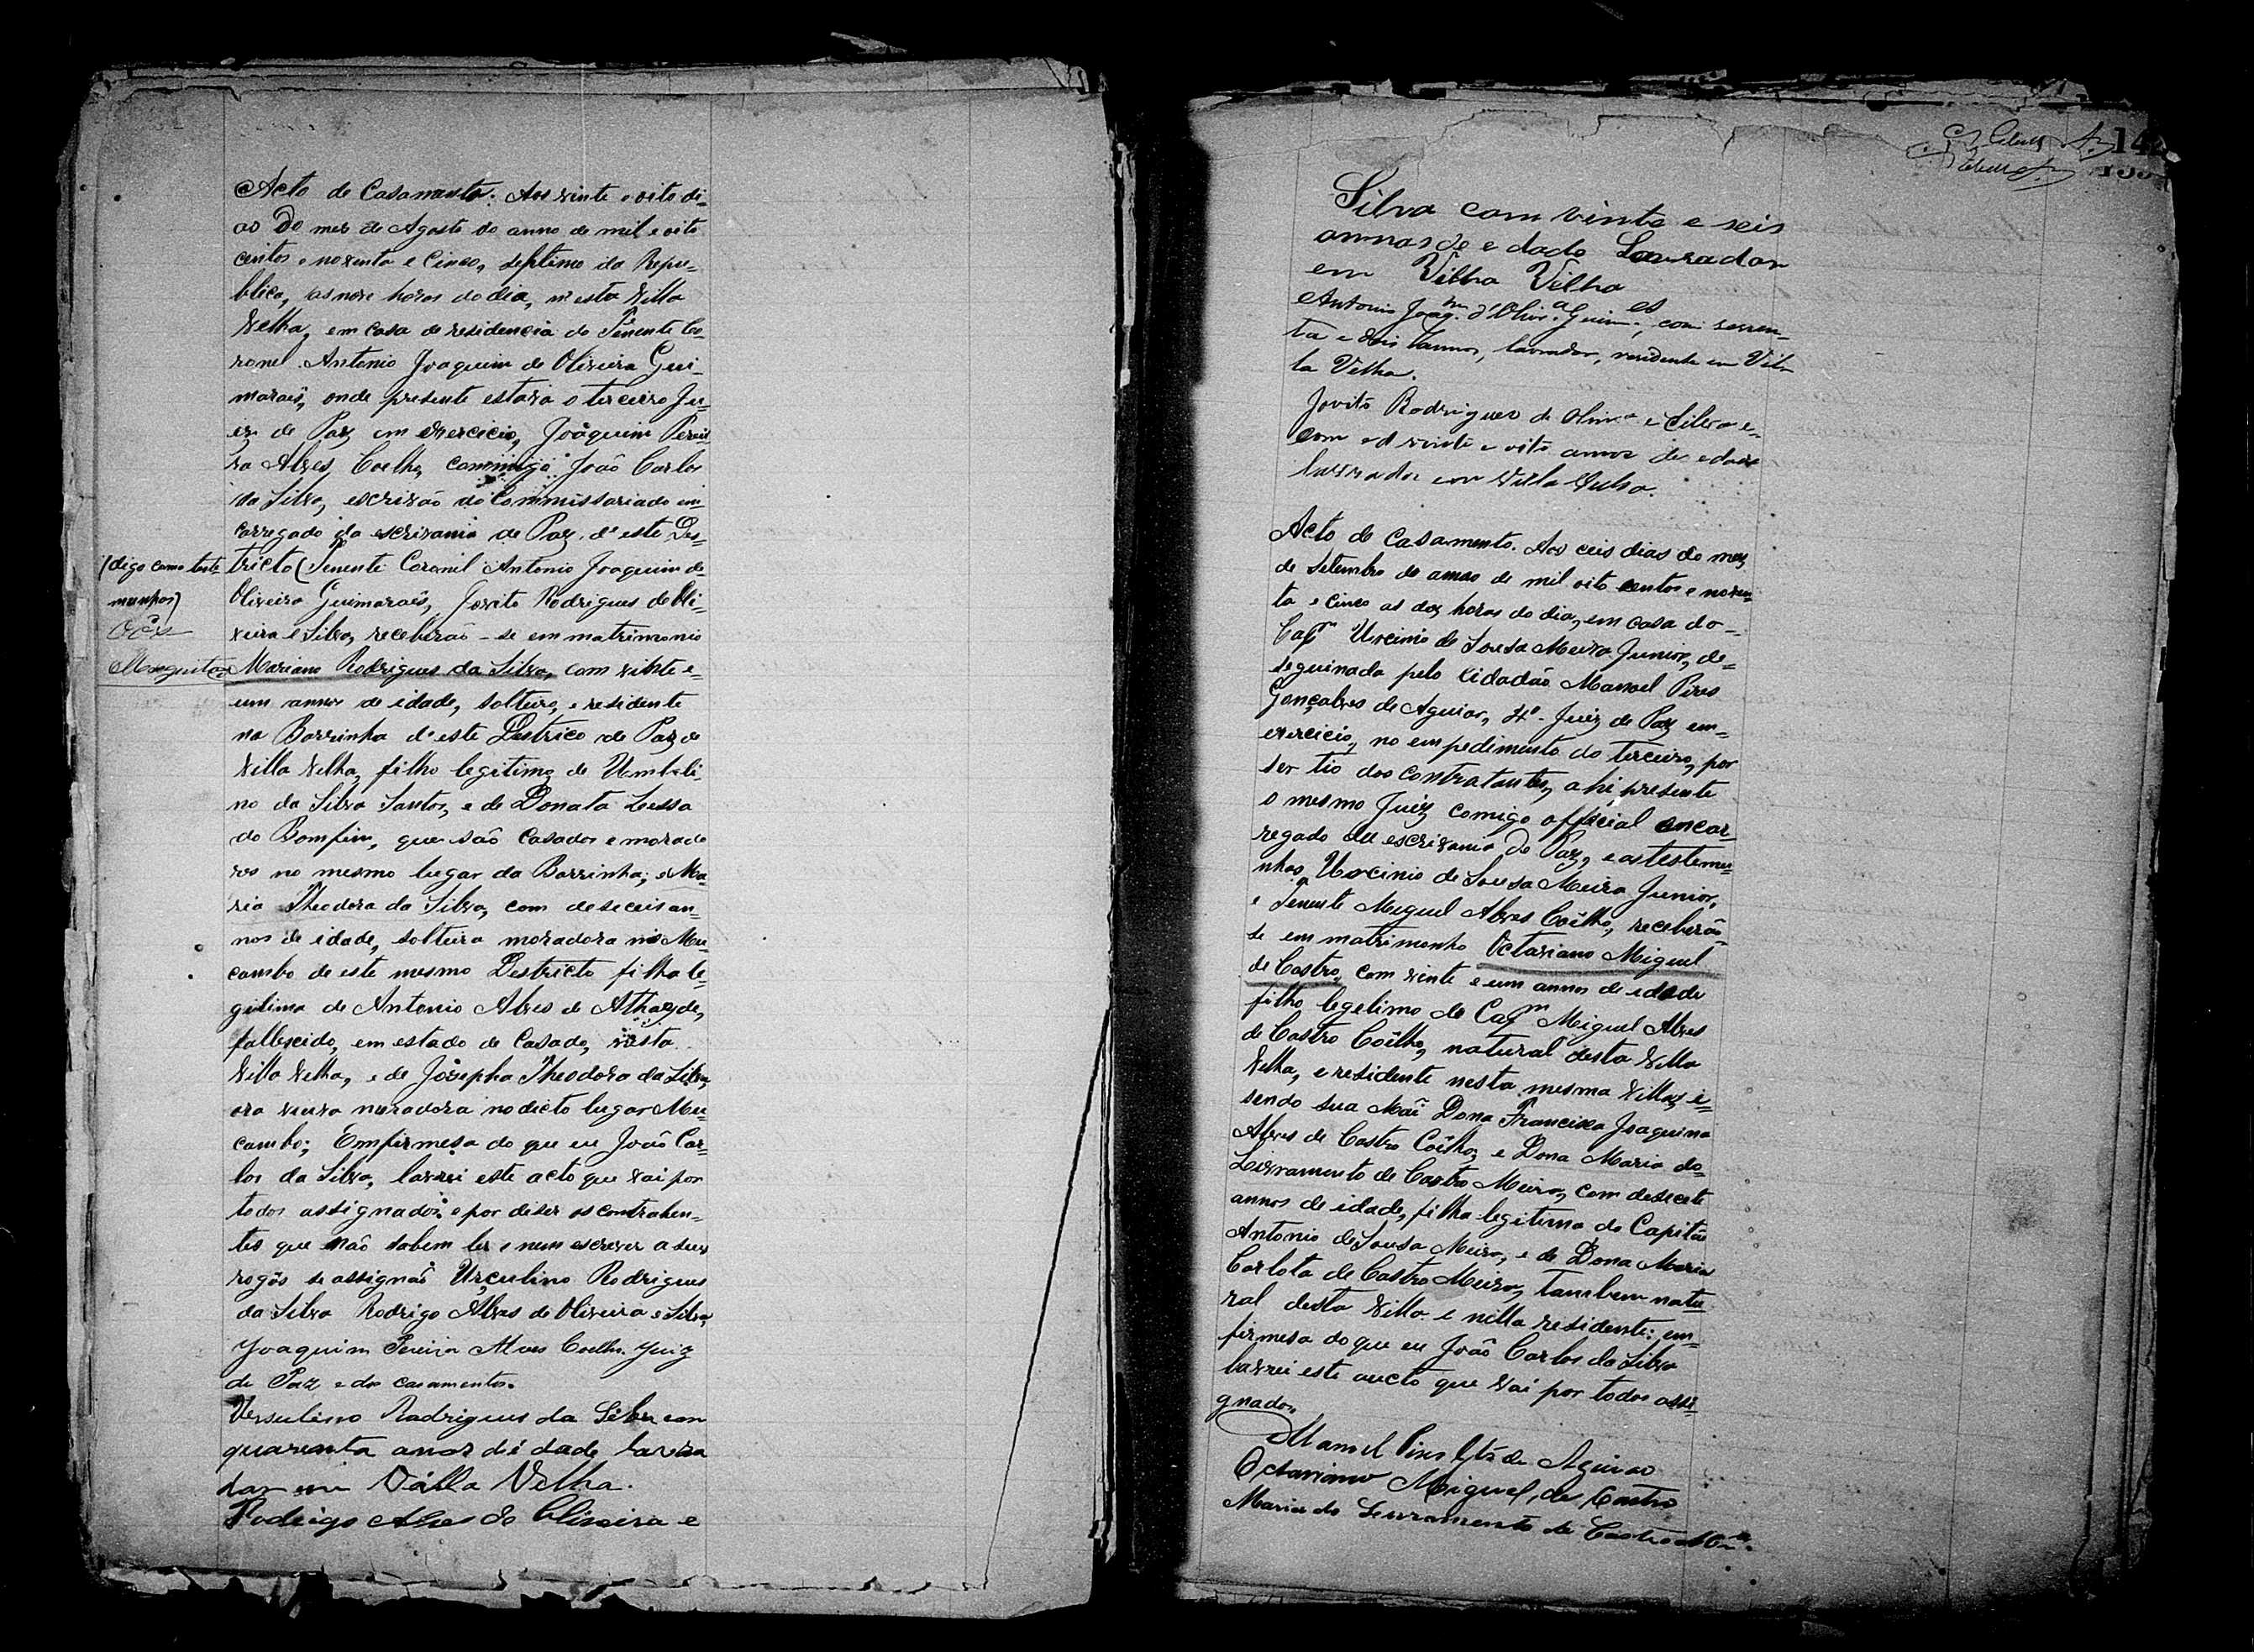 Acto de Casamento. Aos vinte e oito di-
as do mez de Agosto do anno de mil e oito
centos e noventa e cinco, septimo da Repu-
blica, as nove horas do dia, n'esta Villa
Velha, em casa de residencia do Tenente Co-
ronel Antonio Joaquim de Oliveira Gui-
marães, onde presente estava o terceiro Ju-
iz de Paz em exercicio, Joaquim Perei-
ra Alves Coelho, commigo João Carlos
da Silva, escrivão do Commissariado en-
carregado da escrivania de Paz d'este Des-
(digo como teste- tricto (Tenente Coronel Antonio Joaquim de
munhas) Oliveira Guimarães, Jovito Rodrigues de Oli-
veira e Silva, receberão-se em matrimonio
Mesquita Mariano Rodrigues da Silva, com vinte e-
um annos de idade, solteiro, e residente
na Barrinha d'este Destrico de Paz de
Villa Velha, filho legitimo de Umbeli-
no da Silva Santos, e de Donata Lessa
do Bomfim, que são casados e morado
res no mesmo lugar da Barrinha; e Ma-
ria Theodora da Silva, com deseceis an-
nos de idade, solteira moradora no Mu-
cambo de este mesmo Destricto filha le-
gitima de Antonio Alves de Athayde,
fallescido, em estado de casado, nesta
Villa Velha, e de Josepha Theodora da Silva,
ora viuva moradora no dicto lugar Mu-
cambo; Em firmesa do que eu João Car-
los da Silva, lavrei este acto que vai por
todos assignados e por diser os contrahen-
tes que não sabem ler e nem escrever a seus
rogos se assignão Urculino Rodrigues
da Silva Rodrigo Alves de Oliveira e Silva,
Joaquim Pereira Alves Coelho Juiz
de Paz e dos casamentos.
Ursulino Rodrigues da Silva con
quarenta anos di dade lavra
dor em Villa Velha.
Rodrigo Alves de Oliveira e
142
Silva com vinte e seis
annos de e dade Lavrador
em Villa Velha
Antonio Joaqm. d'Olivra. Guimes, com sessen-
ta e dois annos, lavrador, residente em Vil-
la Velha.
Jovito Rodrigues de Olivra e Silva e-
com vinte e oito annos de edade
lavrador em Villa Velha.
Acto de Casamento. Aos ceis dias do mez
de Setembro do anno de mil oito centos e noven-
ta e cinco as dez horas do dia, em casa do-
Capm Urcinio de Sousa Meira Junior, de-
seguinada pelo Cidadão Manoel Pires
Gonçalves de Aguiar, 4º Juiz de Paz em-
exercicio, no empedimento do terceiro, por
ser tio dos contratantes, ahi presente
o mesmo Juiz comigo official encar-
regado da escrivania de Paz, e as testemu-
nhas, Urcinio de Sousa Meira Junior,
e Tenente Miguel Alves Coêlho, receberão-
se em matrimonho Octaviano Miguel
de Castro, com vinte e um annos de edade
filho legetimo do Capm Miguel Alves
de Castro Coêlho, natural desta Villa
Velha, e residente nesta mesma Villa, e-
sendo sua Mãi Dona Francisca Joaquina
Alves de Castro Coêlho, e Dona Maria do-
Livramento de Castro Meira, com desecete
annos de idade, filha legitima do Capitão
Antonio de Sousa Meira, e de Dona Maria
Carlota de Castro Meira, tambem natu-
ral desta Villa e nella residente: em-
firmesa do que eu João Carlos da Silva
lavrei este aucto que vai por todos assi-
gnados,
Manoel Pires Glz de Aguiar
Octaviano Miguel de Castro
Maria do Livramento de Castro Mra.